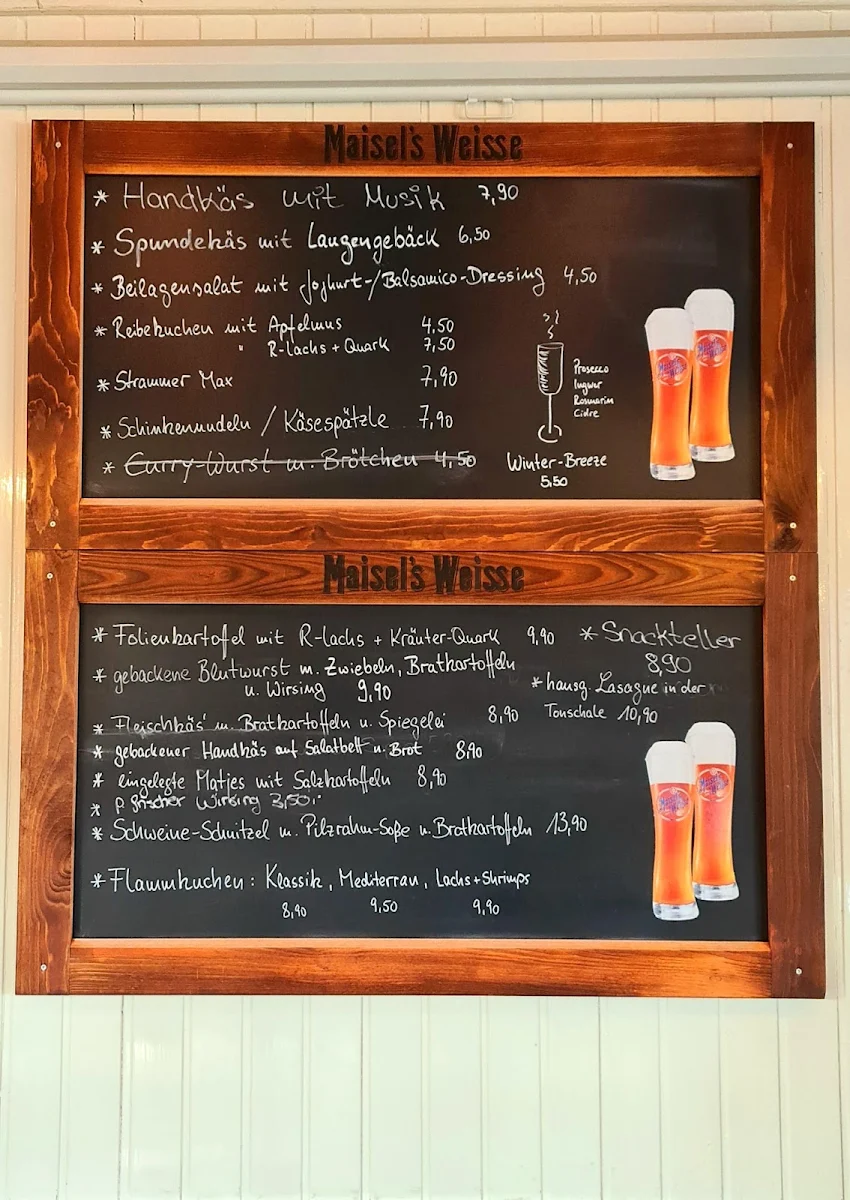 Maisel's Weisse
* Handkäs mit Musik 7,90
* Spundekäs mit Laugengebäck 6,50
* Beilagensalat mit Joghurt-/Balsamico-Dressing 4,50
* Reibekuchen mit Apfelmus 4,50
" R-lachs + Quark 7,50
* Strammer Max 7,90
* Schinkennudeln / Käsespätzle 7,90
* Curry-Wurst m. Brötchen 4,50
Prosecco
Ingwer
Rosmarin
Cidre
Winter-Breeze
5,50
Maisel's Weisse
* Folienkartoffel mit R-lachs + Kräuter-Quark 9,90
* gebackene Blutwurst m. Zwiebeln, Bratkartoffeln
u. Wirsing 9,90
* Fleischkäs' m. Bratkartoffeln u. Spiegelei 8,90
* gebackener Handkäs auf Salatbett u. Brot 8,90
* eingelegte Matjes mit Salzkartoffeln 8,90
* frischer Wirsing 3,50
* Schweine-Schnitzel m. Pilzrahm-Soße u. Bratkartoffeln 13,90
* Flammkuchen: Klassik, Mediterran, Lachs + Shrimps
8,90 9,50 9,90
* Snackteller
8,90
* hausg. Lasagne in der
Tonschale 10,90